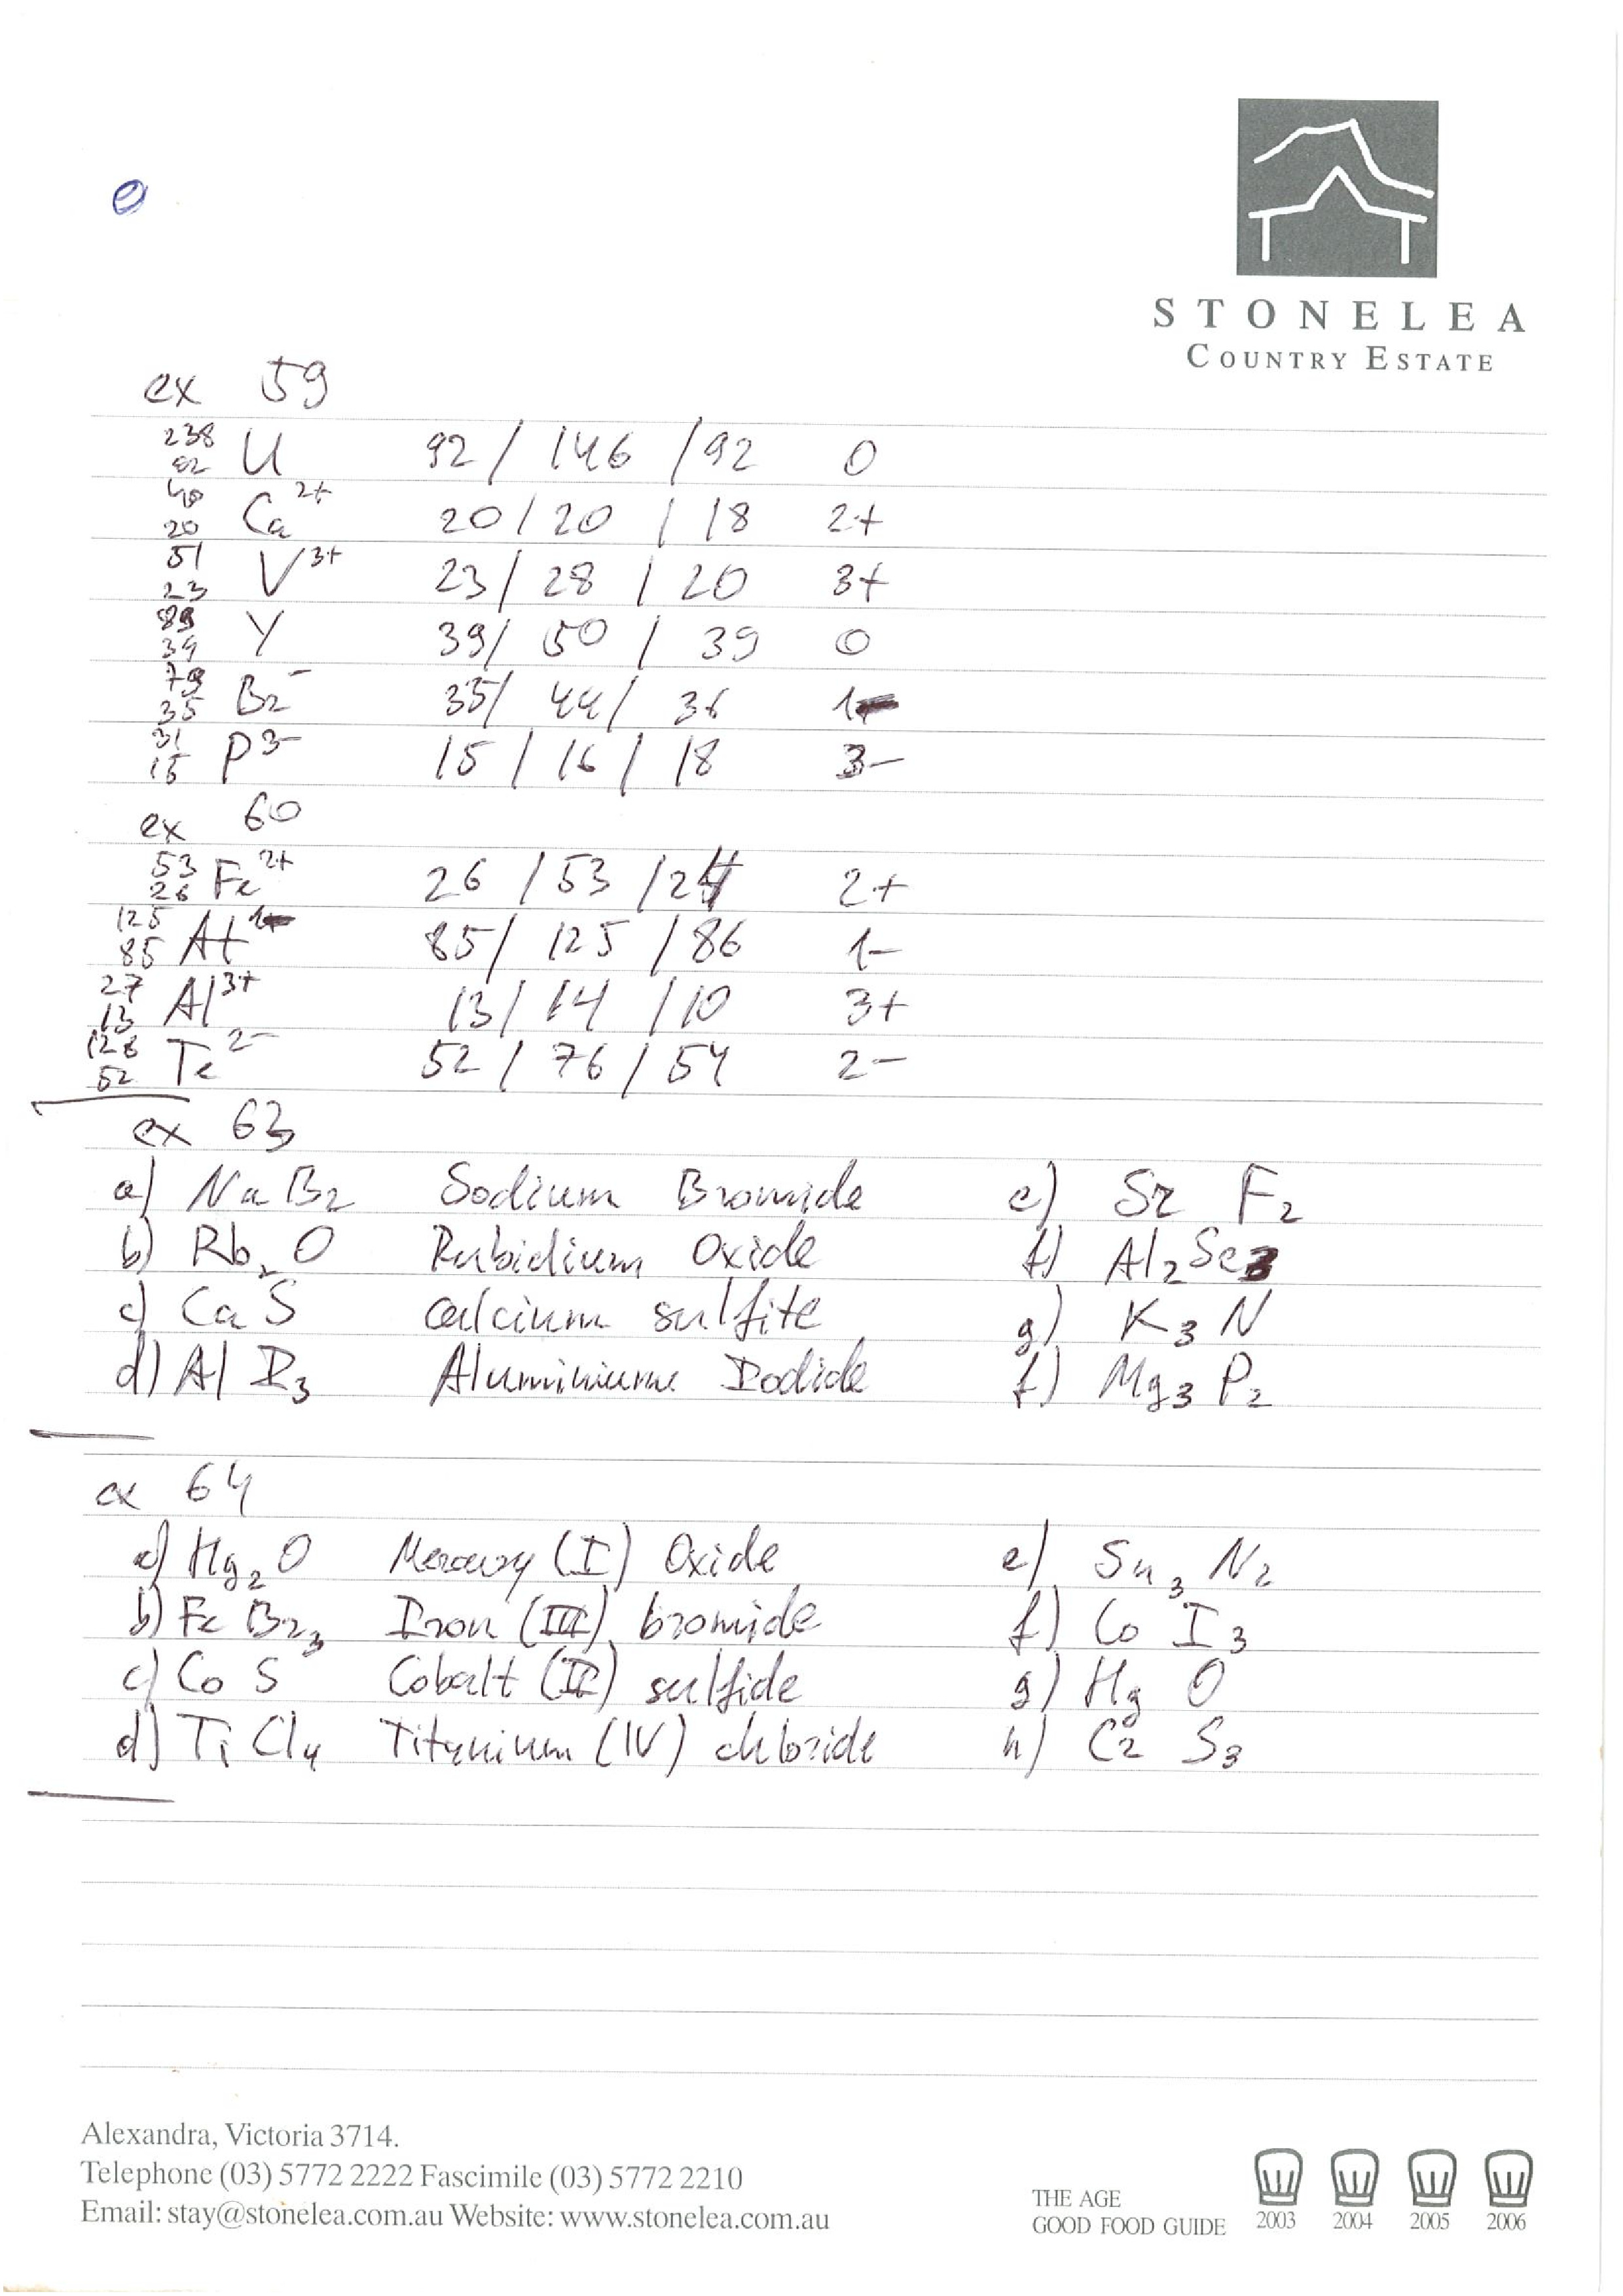 e
STONELEA
COUNTRY ESTATE
ex 59
238 92 U 92 / 146 / 92 0
40 20 Ca 2+ 20 / 20 / 18 2+
51 23 V 3+ 23 / 28 / 20 3+
89 39 Y 39 / 50 / 39 0
79 35 Br - 35 / 44 / 36 1-
31 15 P 3- 15 / 16 / 18 3-
ex 60
53 26 Fe 2+ 26 / 53 / 24 2+
125 85 At 1- 85 / 125 / 86 1-
27 13 Al 3+ 13 / 14 / 10 3+
128 52 Te 2- 52 / 76 / 54 2-
ex 63
a) Na Br Sodium Bromide e) Sr F2
b) Rb2 O Rubidium Oxide f) Al2 Se3
c) Ca S Calcium sulfite g) K3 N
d) Al I3 Aluminium Iodide f) Mg3 P2
ex 64
a) Hg2 O Mercury (I) Oxide e) Sn3 N2
b) Fe Br3 Iron (III) bromide f) Co I3
c) Co S Cobalt (II) sulfide g) Hg O
d) Ti Cl4 Titanium (IV) chloride h) Cr2 S3
Alexandra, Victoria 3714.
Telephone (03) 5772 2222 Fascimile (03) 5772 2210
Email: stay@stonelea.com.au Website: www.stonelea.com.au
THE AGE
GOOD FOOD GUIDE 2003 2004 2005 2006